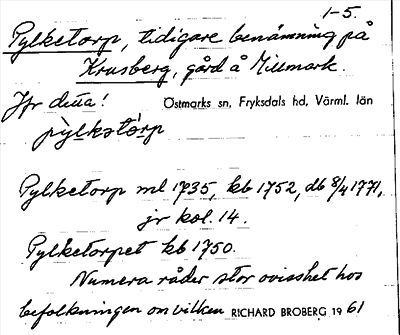 1-5.
Pylketorp, tidigare benämning på
Krusberg, gård å Millmark.
Jfr dessa! Östmarks sn, Fryksdals hd, Värml. län
pylkstórp
Pylketorp ml 1735, kb 1752, db 8/4 1771,
jr kol. 14.
Pylketorpet kb 1750.
Numera råder stor ovisshet hos
befolkningen om vilken RICHARD BROBERG 1961